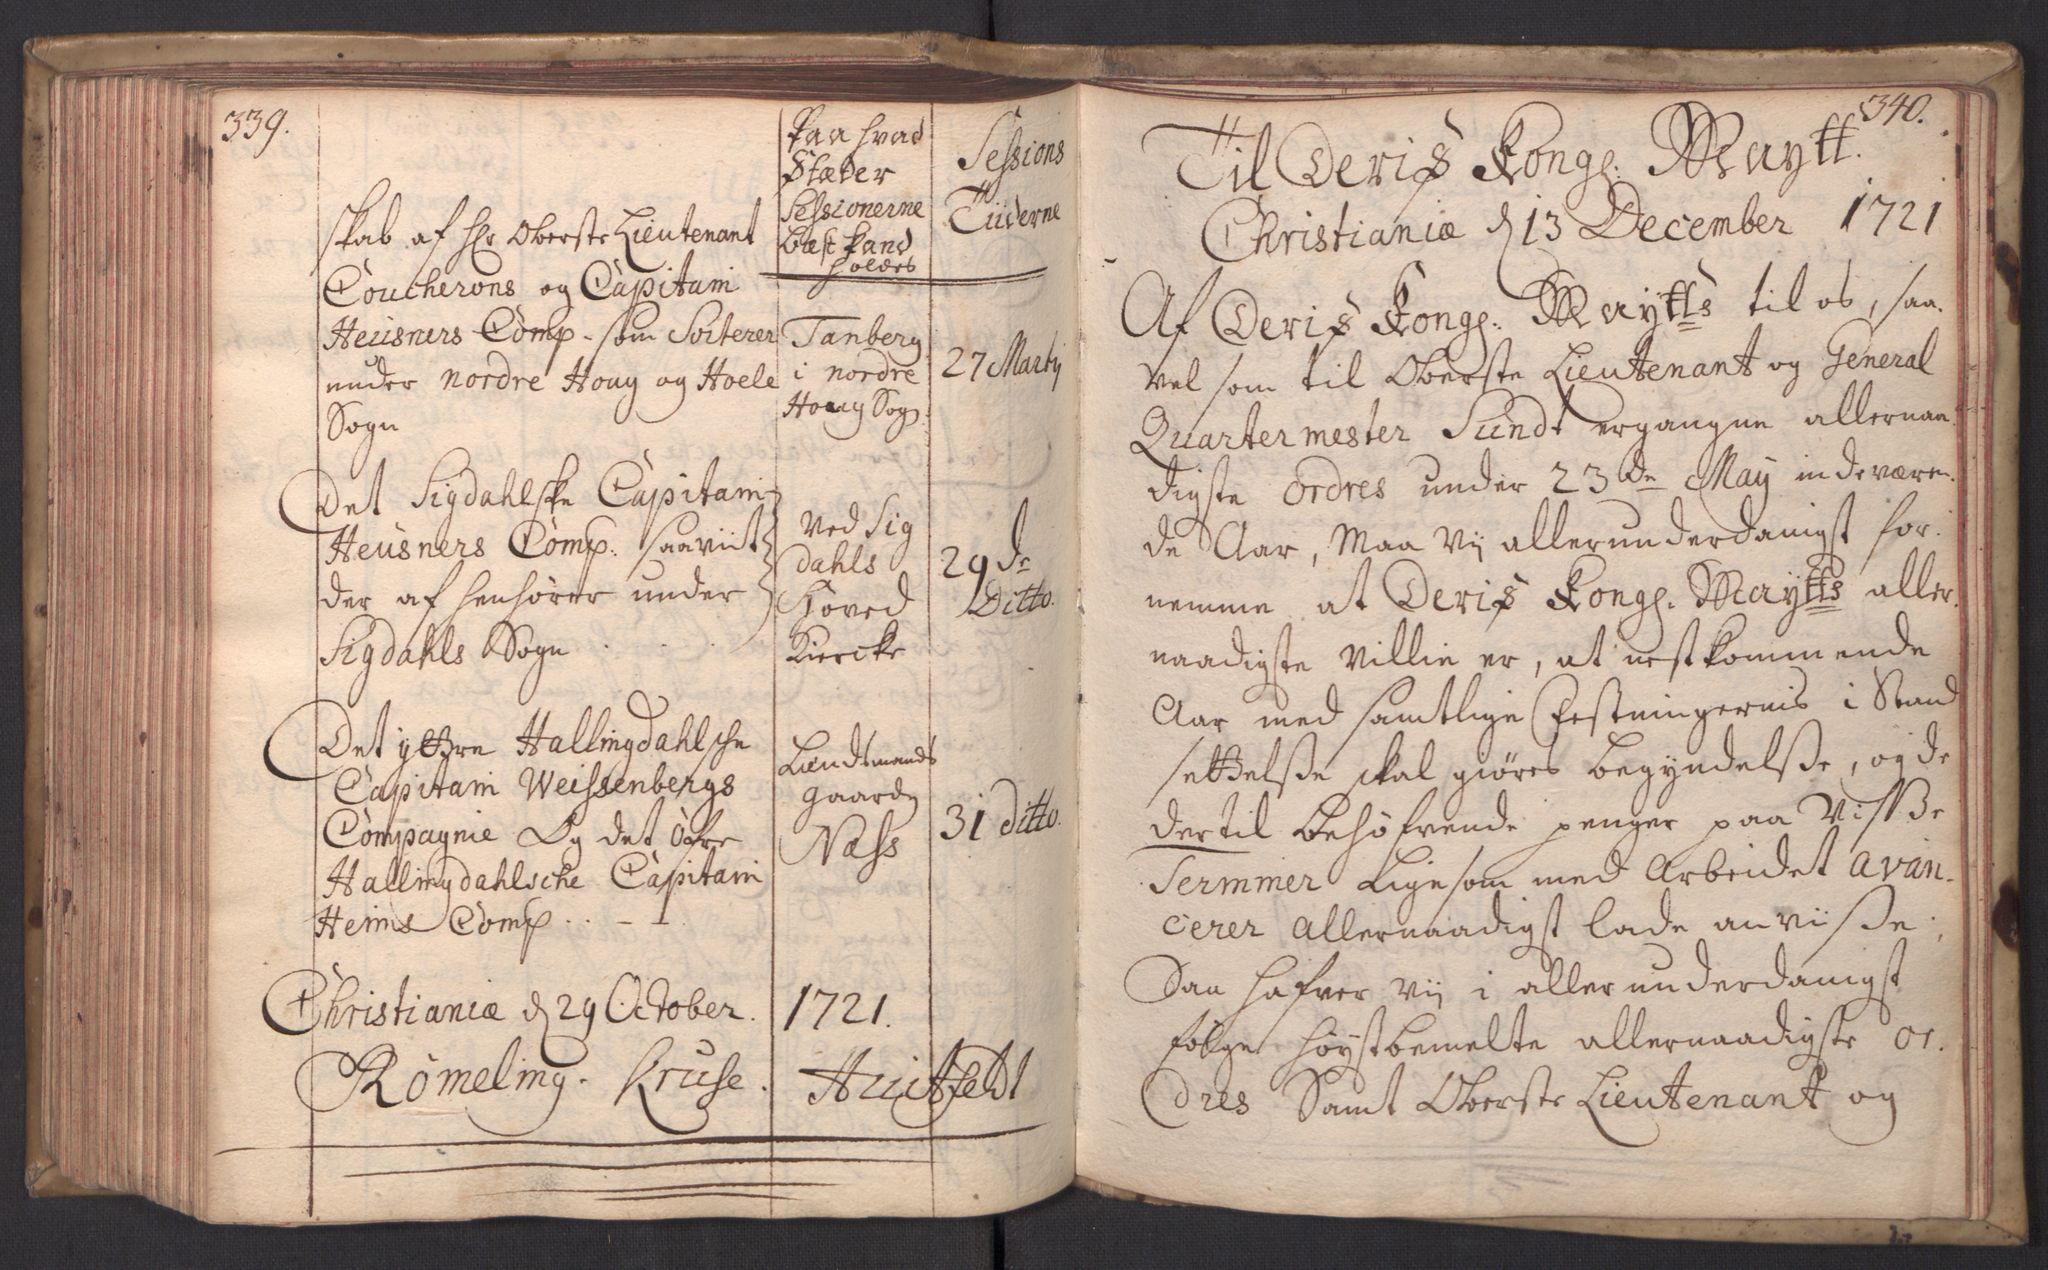 339.
Paa hvad
Stæder
Sessionerne
best kand
holdes
Sessions
Tiiderne
skab af Hr Oberste Lieutenant
Coucherons og Capitain
Heusners Comp. som Sorterer
under Nordre Houg og Hoele
Sogn
Tanberg
i nordre
Houg Sogn.
27 Martij
Det Sigdahlske Capitain
Heusners Comp. saaviit
der af henhörer under
Sigdahls Sogn
Ved Sig
dahls
Hoved
Kiercke
29 de
Ditto.
Det ytzre Hallingdahlsche
Capitain Weissenbergs
Compagnie Og det öfre
Hallingdahlsche Capitain
Heins Comp
Lendsmands
gaarden
Næss
31 ditto.
Christianiæ d 29 October. 1721.
Römeling. Kruse. Huitfeldt
340.
Til Deris Kongl: Maytt.
Christianiæ d 13 December 1721
Af Deris Kongl: Maytts til os, saa
vel som til Oberste Lieutenant og General
Quartermester Sundt ergangne allernaa
digste Ordres under 23 de May indeværen
de Aar, Maa Vij allerunderdanigst for
nemme at Deris Kongl. Maytts aller
naadigste Villie er, at nestkommende
Aar med samtlige Festningernis i Stand
settelse skal giöres begyndelse, og de
dertil behøfvende penger paa Visse
Terminer Ligesom med Arbeidet avan-
cerer Allernaadigst lade anviise,
Saa hafver Vij i allerunderdanigst
fölge höystbemelte allernaadigste Or
dres Samt Oberste Lieutenant og